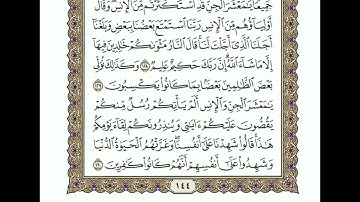 جَمِيعًا يَٰمَعْشَرَ ٱلْجِنِّ قَدِ ٱسْتَكْثَرْتُم مِّنَ ٱلْإِنسِ وَقَالَ
أَوْلِيَآؤُهُم مِّنَ ٱلْإِنسِ رَبَّنَا ٱسْتَمْتَعَ بَعْضُنَا بِبَعْضٍ وَبَلَغْنَآ
أَجَلَنَا ٱلَّذِىٓ أَجَّلْتَ لَنَا قَالَ ٱلنَّارُ مَثْوَىٰكُمْ خَٰلِدِينَ فِيهَآ
إِلَّا مَا شَآءَ ٱللَّهُ إِنَّ رَبَّكَ حَكِيمٌ عَلِيمٌ ١٢٨ وَكَذَٰلِكَ نُوَلِّى
بَعْضَ ٱلظَّٰلِمِينَ بَعْضًۢا بِمَا كَانُوا۟ يَكْسِبُونَ ١٢٩
يَٰمَعْشَرَ ٱلْجِنِّ وَٱلْإِنسِ أَلَمْ يَأْتِكُمْ رُسُلٌ مِّنكُمْ
يَقُصُّونَ عَلَيْكُمْ ءَايَٰتِى وَيُنذِرُونَكُمْ لِقَآءَ يَوْمِكُمْ
هَٰذَا قَالُوا۟ شَهِدْنَا عَلَىٰٓ أَنفُسِنَا وَغَرَّتْهُمُ ٱلْحَيَوٰةُ ٱلدُّنْيَا
وَشَهِدُوا۟ عَلَىٰٓ أَنفُسِهِمْ أَنَّهُمْ كَانُوا۟ كَٰفِرِينَ ١٣٠
١٤٤